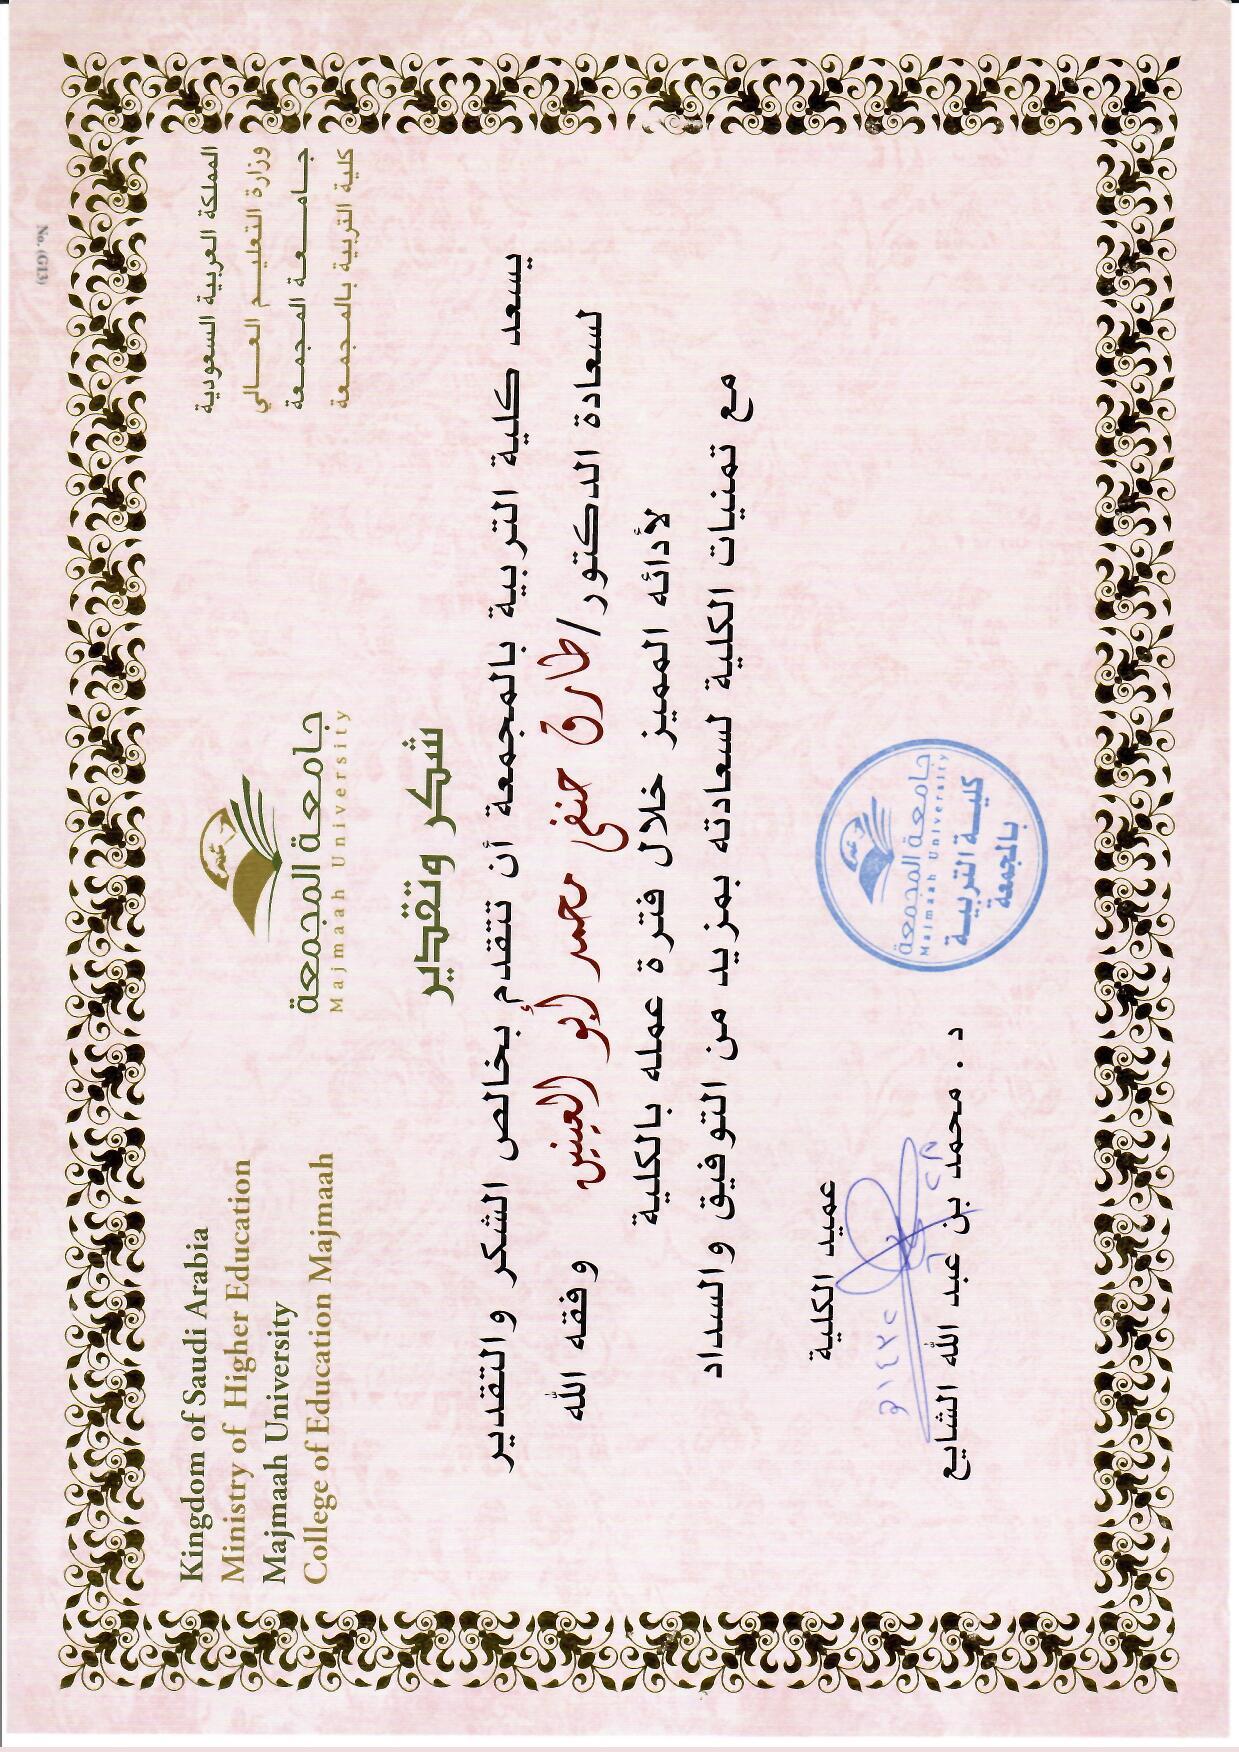 Kingdom of Saudi Arabia
Ministry of Higher Education
Majmaah University
College of Education Majmaah
جامعة المجمعة
Majmaah University
المملكة العربية السعودية
وزارة التعليم العالي
جامعة المجمعة
كلية التربية بالمجمعة
No. (G13)
شكر وتقدير
يسعد كلية التربية بالمجمعة أن تتقدم بخالص الشكر والتقدير
لسعادة الدكتور/طارق حنفي محمد أبو العينين وفقه الله
لأدائه المميز خلال فترة عمله بالكلية
مع تمنيات الكلية لسعادته بمزيد من التوفيق والسداد
عميد الكلية
د. محمد بن عبد الله الشايع
جامعة المجمعة
Majmaah University
كلية التربية
بالمجمعة